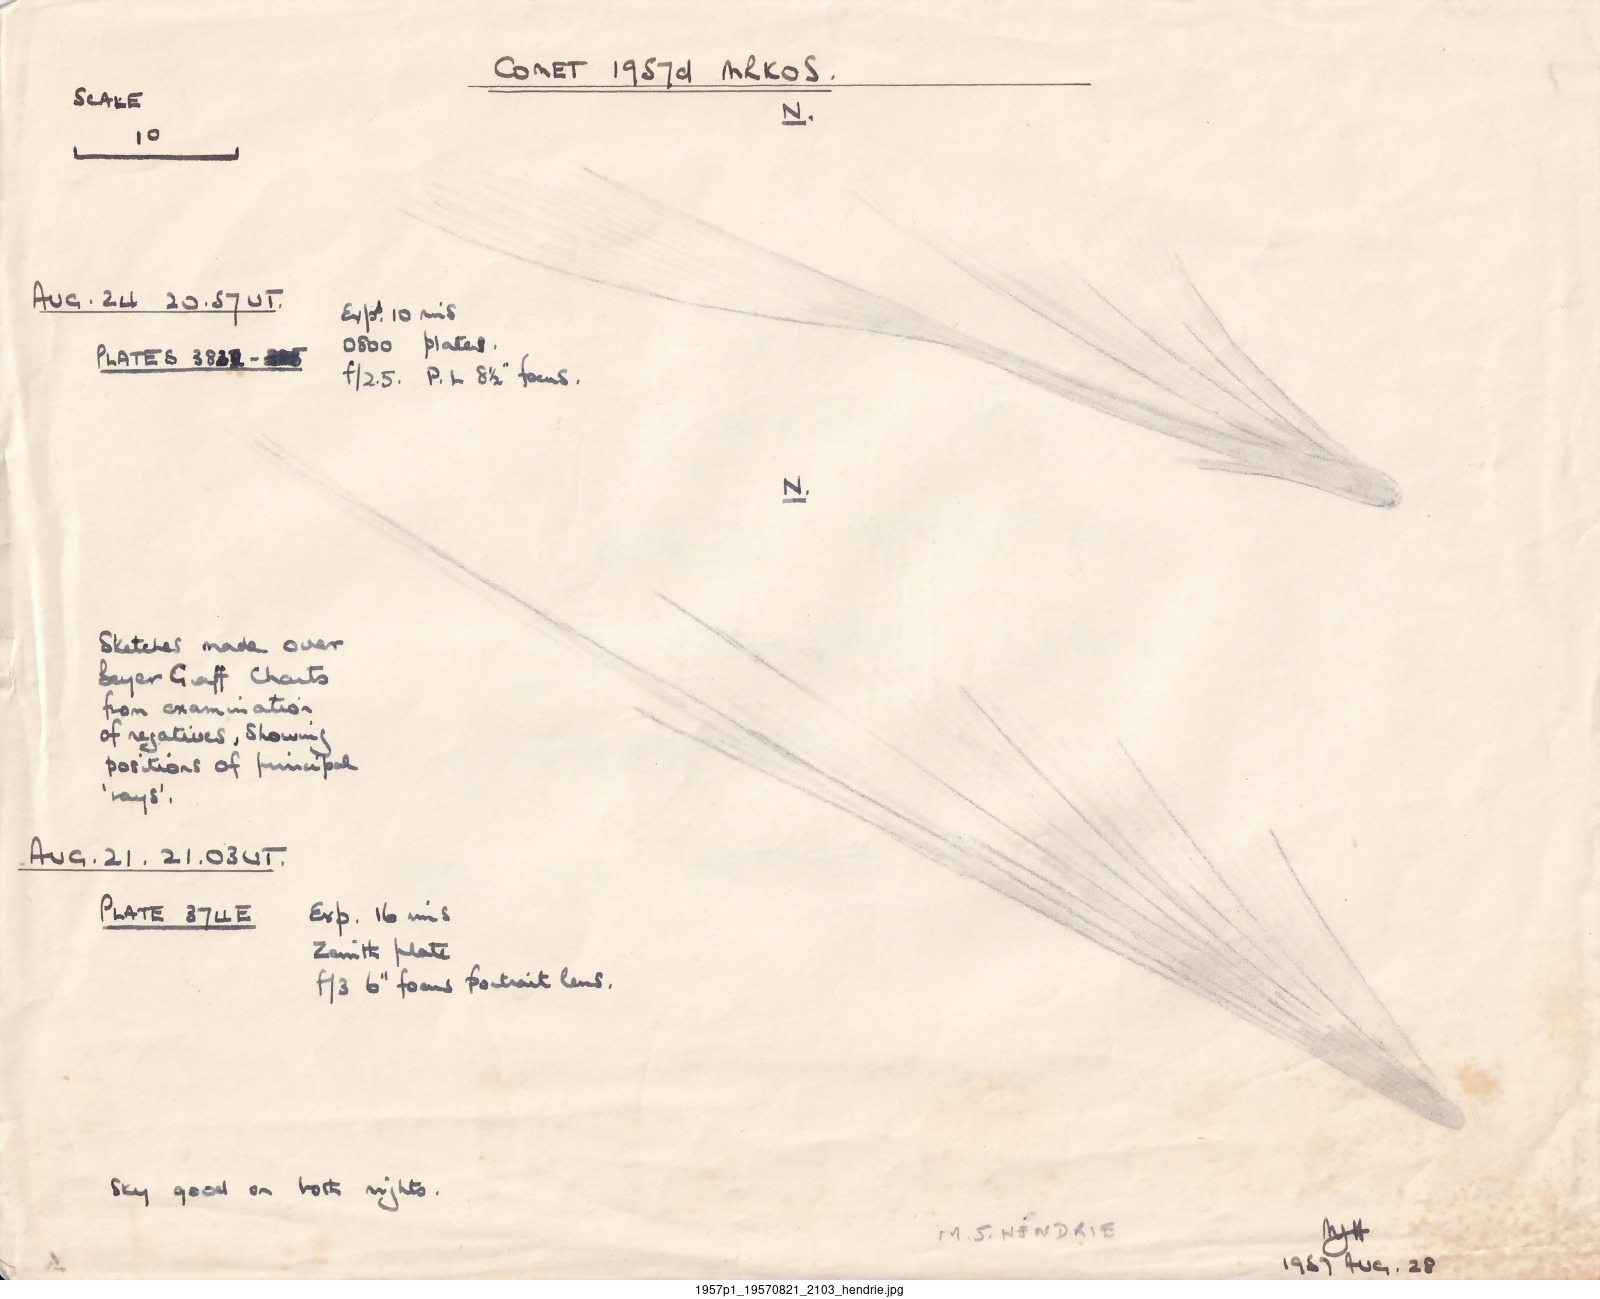 COMET 1957d MRKOS.
N.
SCALE
10
AUG. 24 20.57 UT.
Exp. 10 mins
PLATES 383
0800 plates.
f/2.5. P.L 8½" focus.
N.
Sketches made over
Beyer Graff Charts
from examination
of negatives, showing
positions of principal
'rays'.
AUG. 21. 21.03 UT.
PLATE 374E
Exp. 16 mins
Zenith plate
f/3 6" focus portrait lens.
Sky good on both nights.
M. J. HENDRIE
MJH
1957 AUG. 28
1957p1_19570821_2103_hendrie.jpg